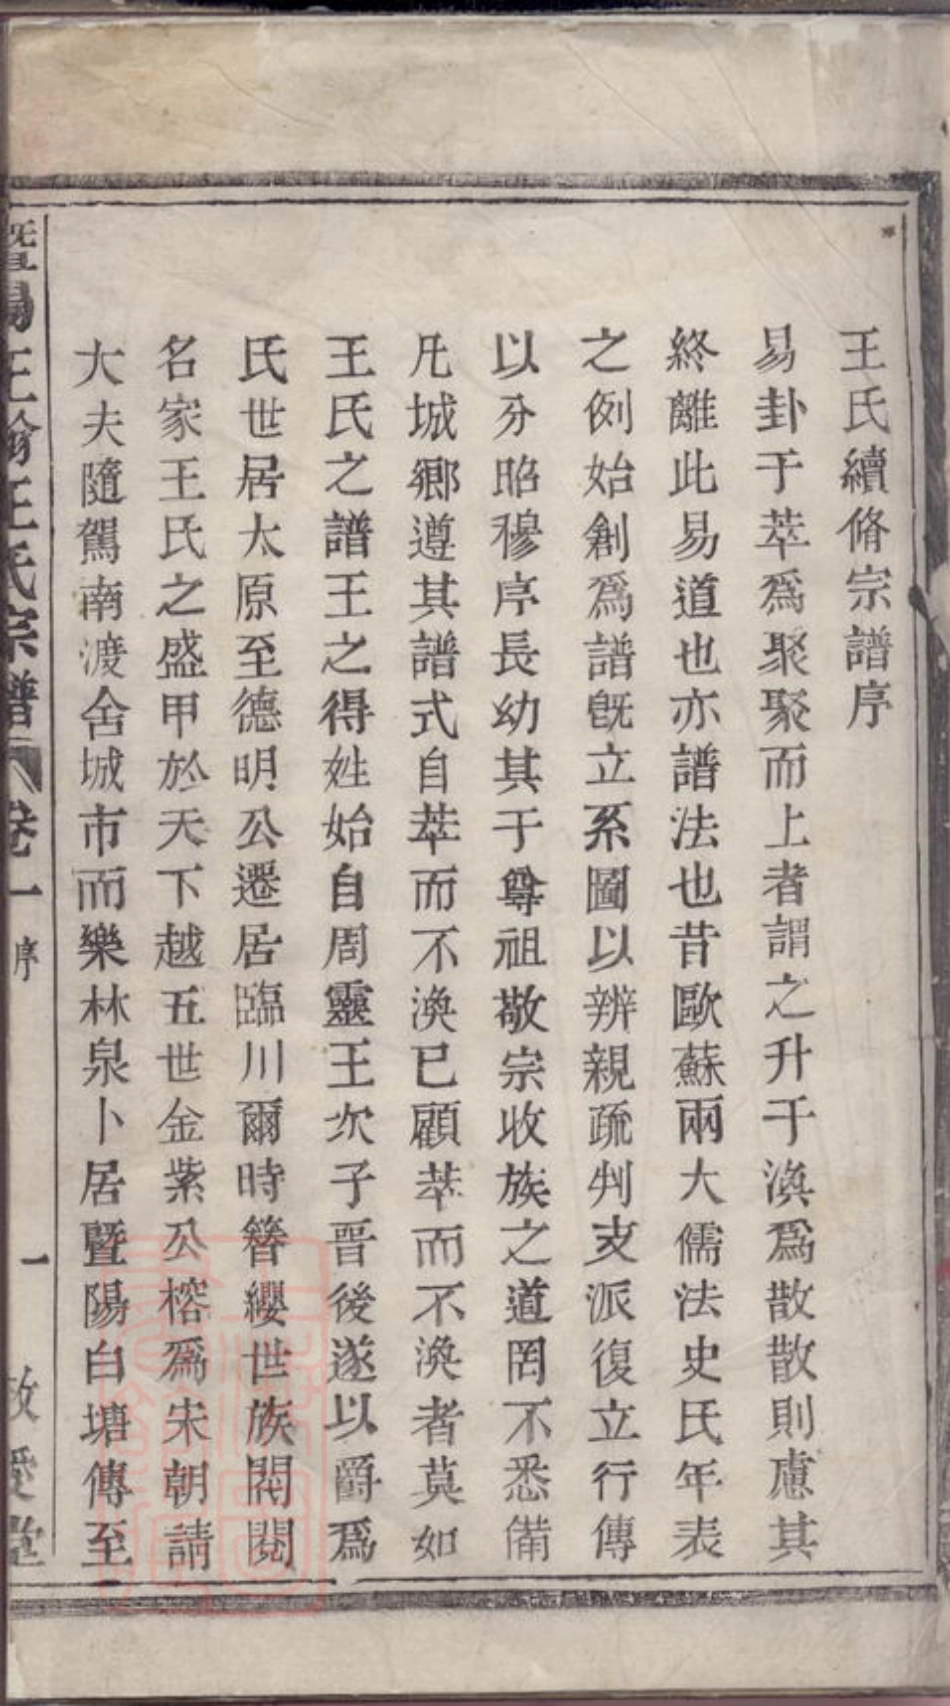 王氏續脩宗譜序
易卦于萃爲聚聚而上者謂之升于渙爲散散則慮其
終離此易道也亦譜法也昔歐蘇兩大儒法史氏年表
之例始創爲譜旣立系圖以辨親疏判支派復立行傳
以分昭穆序長幼其于尊祖敬宗收族之道罔不悉備
凡城鄉遵其譜式自萃而不渙已顧萃而不渙者莫如
王氏之譜王之得姓始自周靈王次子晋後遂以爵爲
氏世居太原至德明公遷居臨川爾時簪纓世族閥閱
名家王氏之盛甲於天下越五世金紫公榕爲宋朝請
大夫隨駕南渡舍城市而樂林泉卜居暨陽白塘傳至
暨陽王翰王氏宗譜 卷一 序 一 敬愛堂